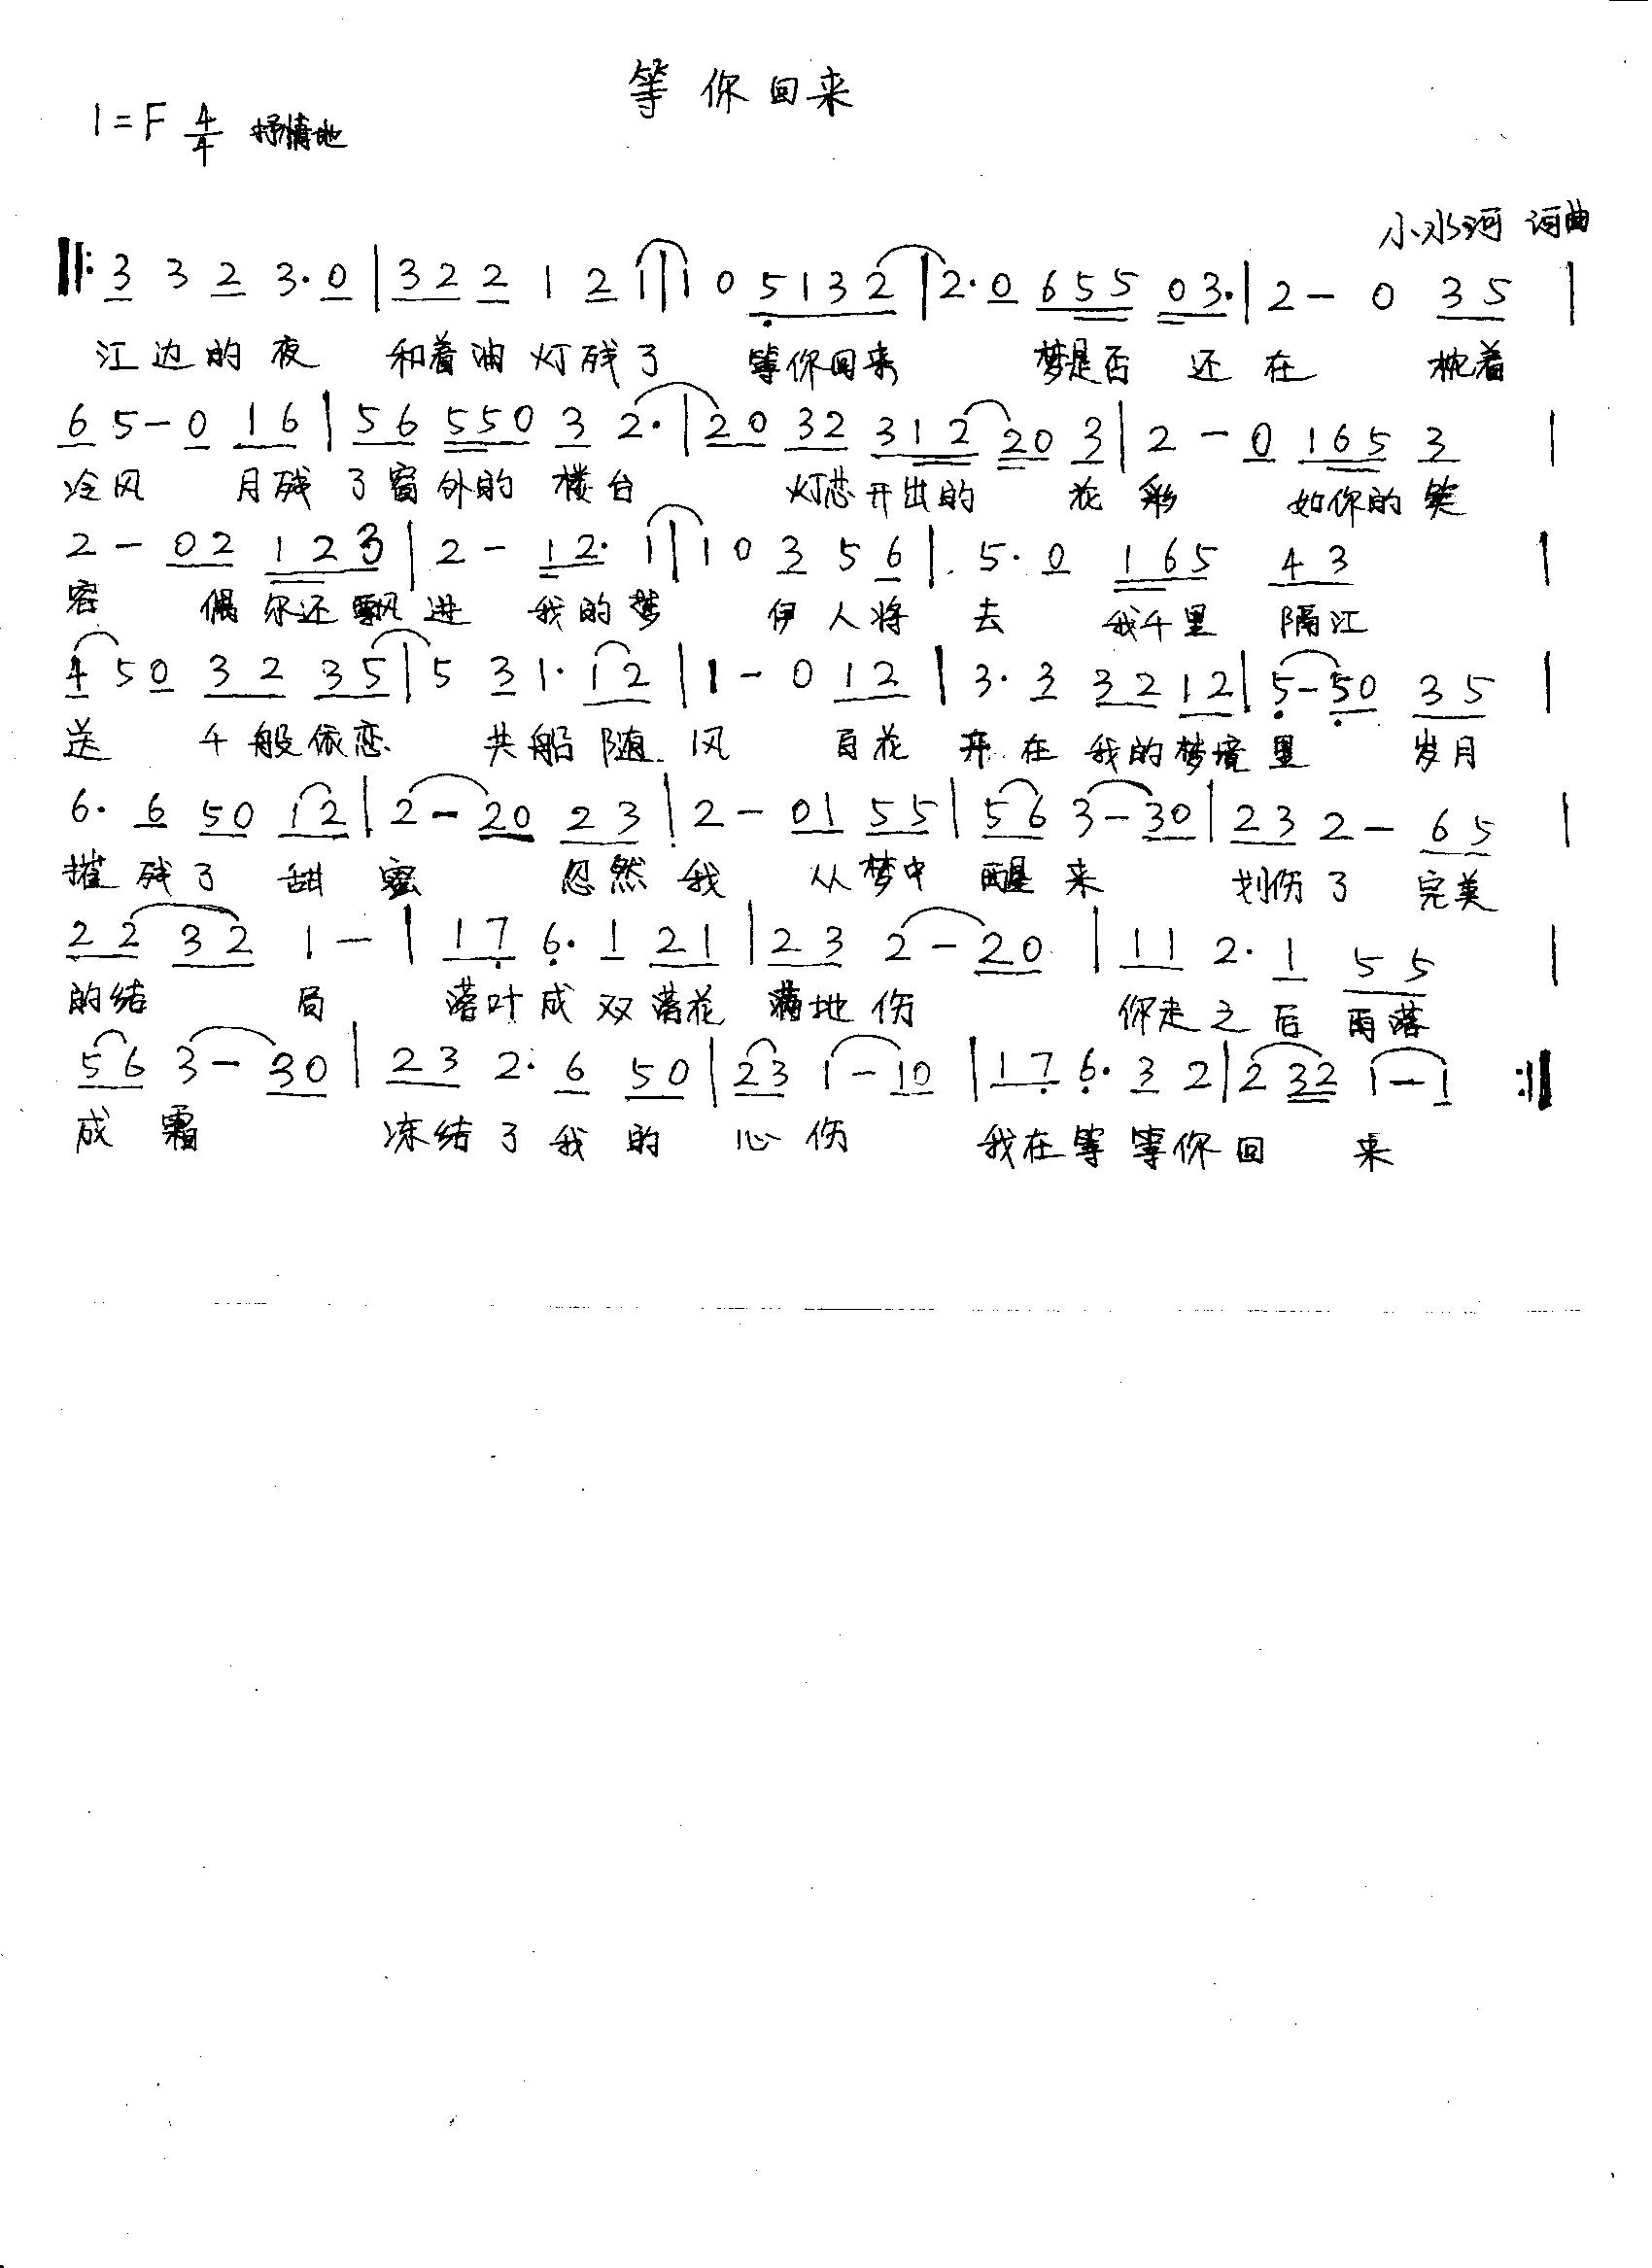 等你回来
1=F 4/4 抒情地
小水河 词曲
‖: 3 3 2 3· 0 | 3 2 2 1 2 1 | 1 0 5 1 3 2 | 2· 0 6 5 5 0 3· | 2 - 0 3 5 |
江边的夜 和着油灯残了 等你回来 梦是否 还在 枕着
6 5 - 0 1 6 | 5 6 5 5 0 3 2· | 2 0 3 2 3 1 2 2 0 3 | 2 - 0 1 6 5 3 |
冷风 月残了窗外的 楼台 灯芯开出的 花彩 如你的笑
2 - 0 2 1 2 3 | 2 - 1 2· 1 | 1 0 3 5 6 | 5· 0 1 6 5 4 3 |
容 偶尔还飘进 我的梦 伊人将 去 我千里 隔江
4 5 0 3 2 3 5 | 5 3 1· 1 2 | 1 - 0 1 2 | 3· 3 3 2 1 2 | 5 - 5 0 3 5 |
送 千般依恋 共船随风 百花 开在我的梦境里 岁月
6· 6 5 0 1 2 | 2 - 2 0 2 3 | 2 - 0 1 5 5 | 5 6 3 - 3 0 | 2 3 2 - 6 5 |
摧残了 甜蜜 忽然我 从梦中 醒来 划伤了 完美
2 2 3 2 1 - | 1 7 6· 1 2 1 | 2 3 2 - 2 0 | 1 1 2· 1 5 5 |
的结 局 落叶成双落花 满地伤 你走之后 雨落
5 6 3 - 3 0 | 2 3 2· 6 5 0 | 2 3 1 - 1 0 | 1 7 6· 3 2 | 2 3 2 1 - 1 :‖
成霜 冻结了我的 心伤 我在等等你回 来